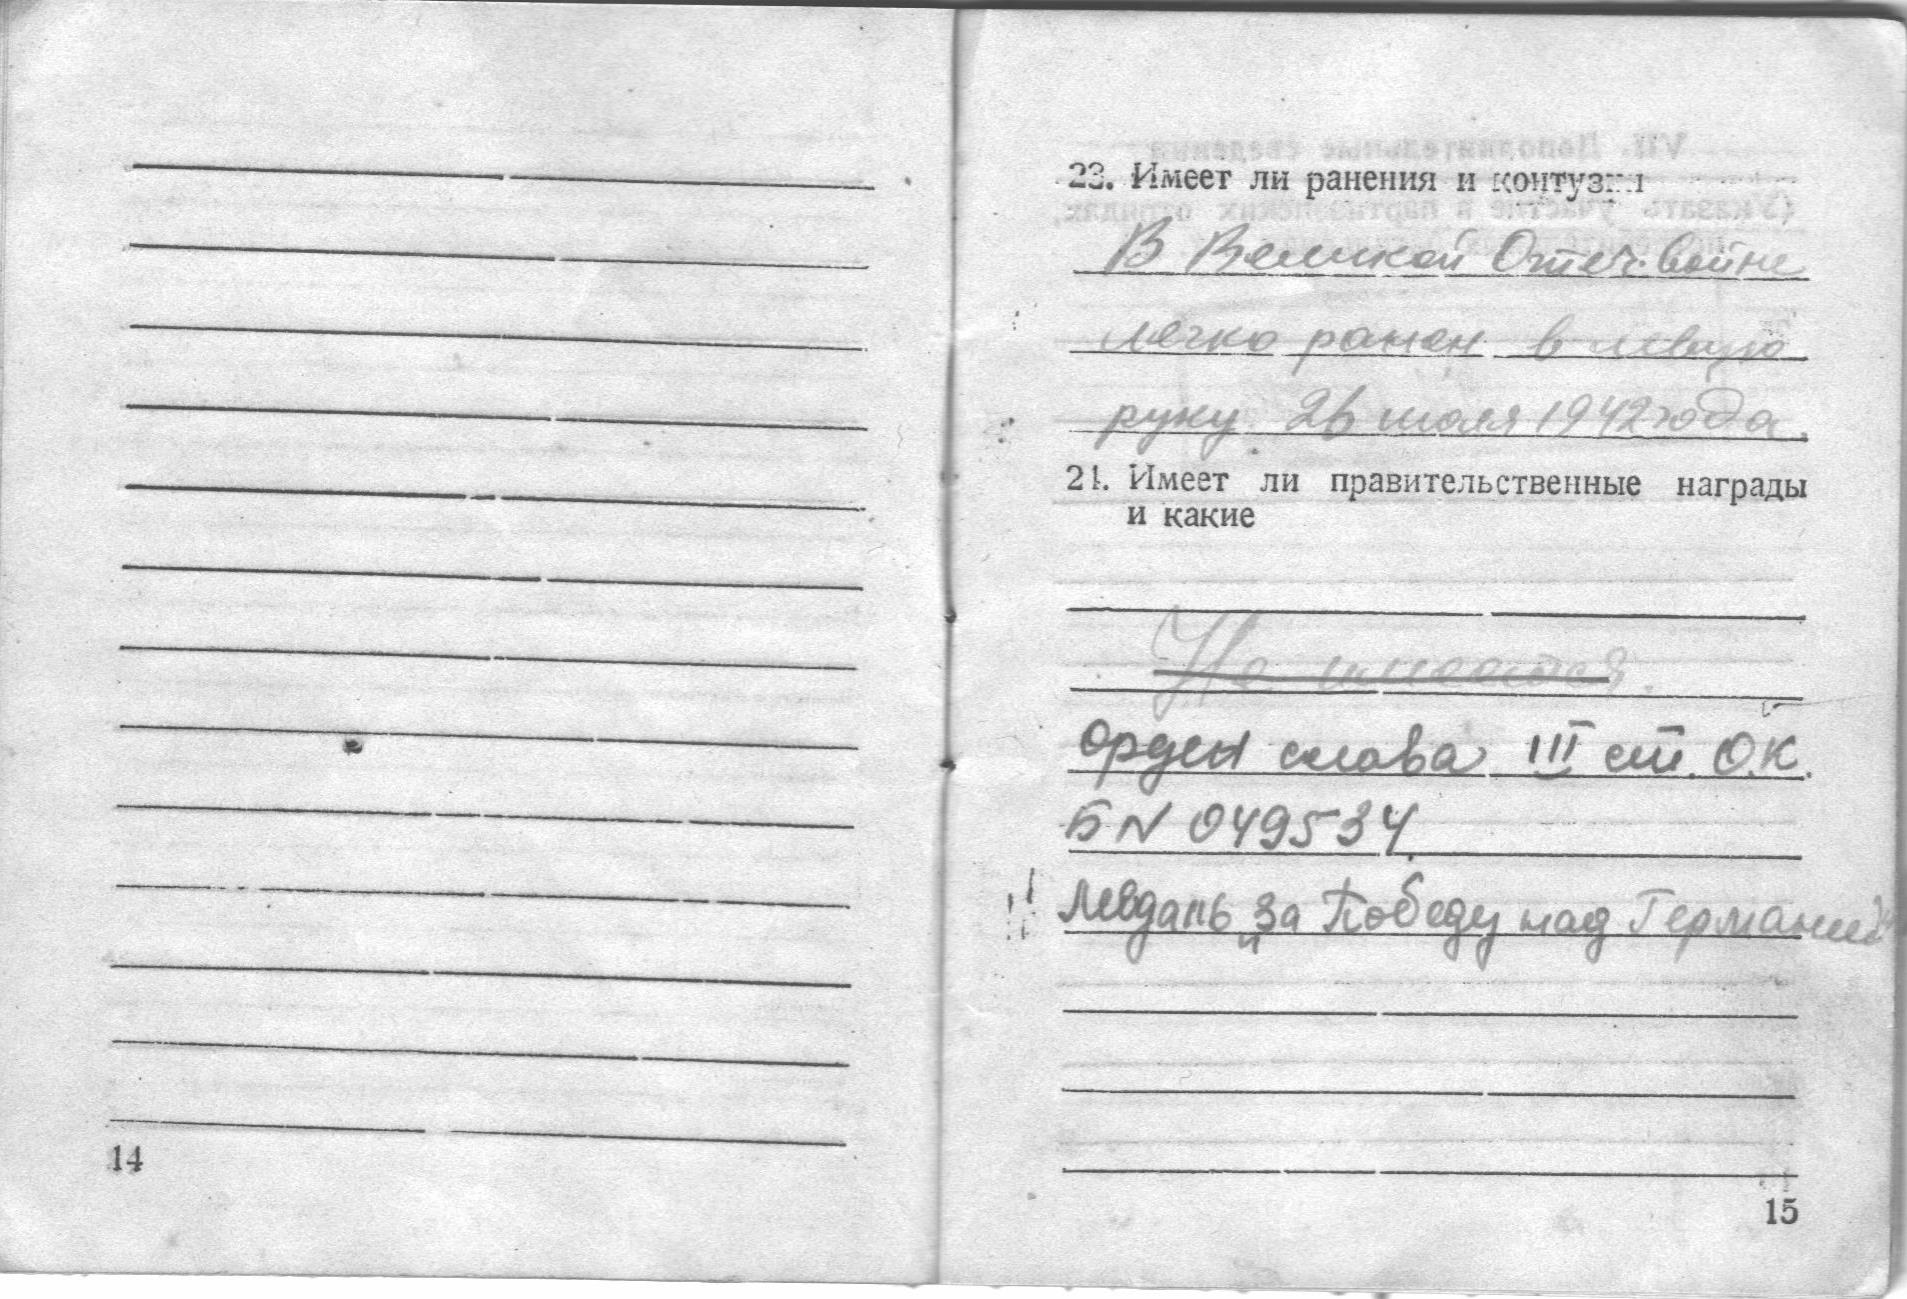 14
23. Имеет ли ранения и контузии
В Великой Отеч. войне
легко ранен в левую
руку 26 июля 1942 года.
24. Имеет ли правительственные награды
и какие
Не имеется.
орден слава III ст. О.К.
Б N 049534
Медаль "За Победу над Германией"
15